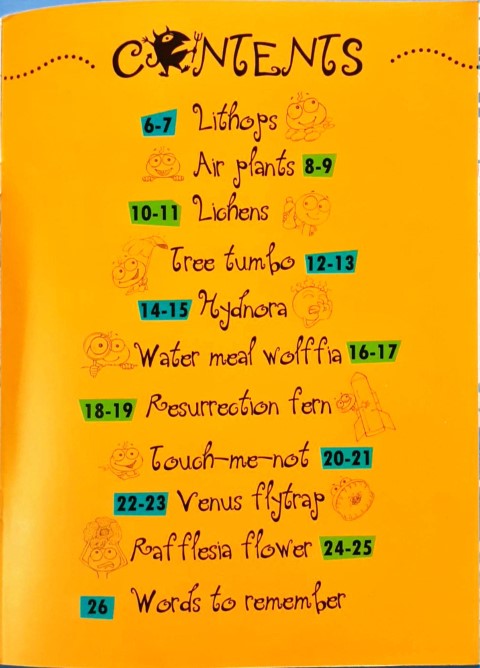 CONTENTS
6-7 Lithops
Air plants 8-9
10-11 Lichens
Tree tumbo 12-13
14-15 Hydnora
Water meal wolffia 16-17
18-19 Resurrection fern
Touch-me-not 20-21
22-23 Venus flytrap
Rafflesia flower 24-25
26 Words to remember